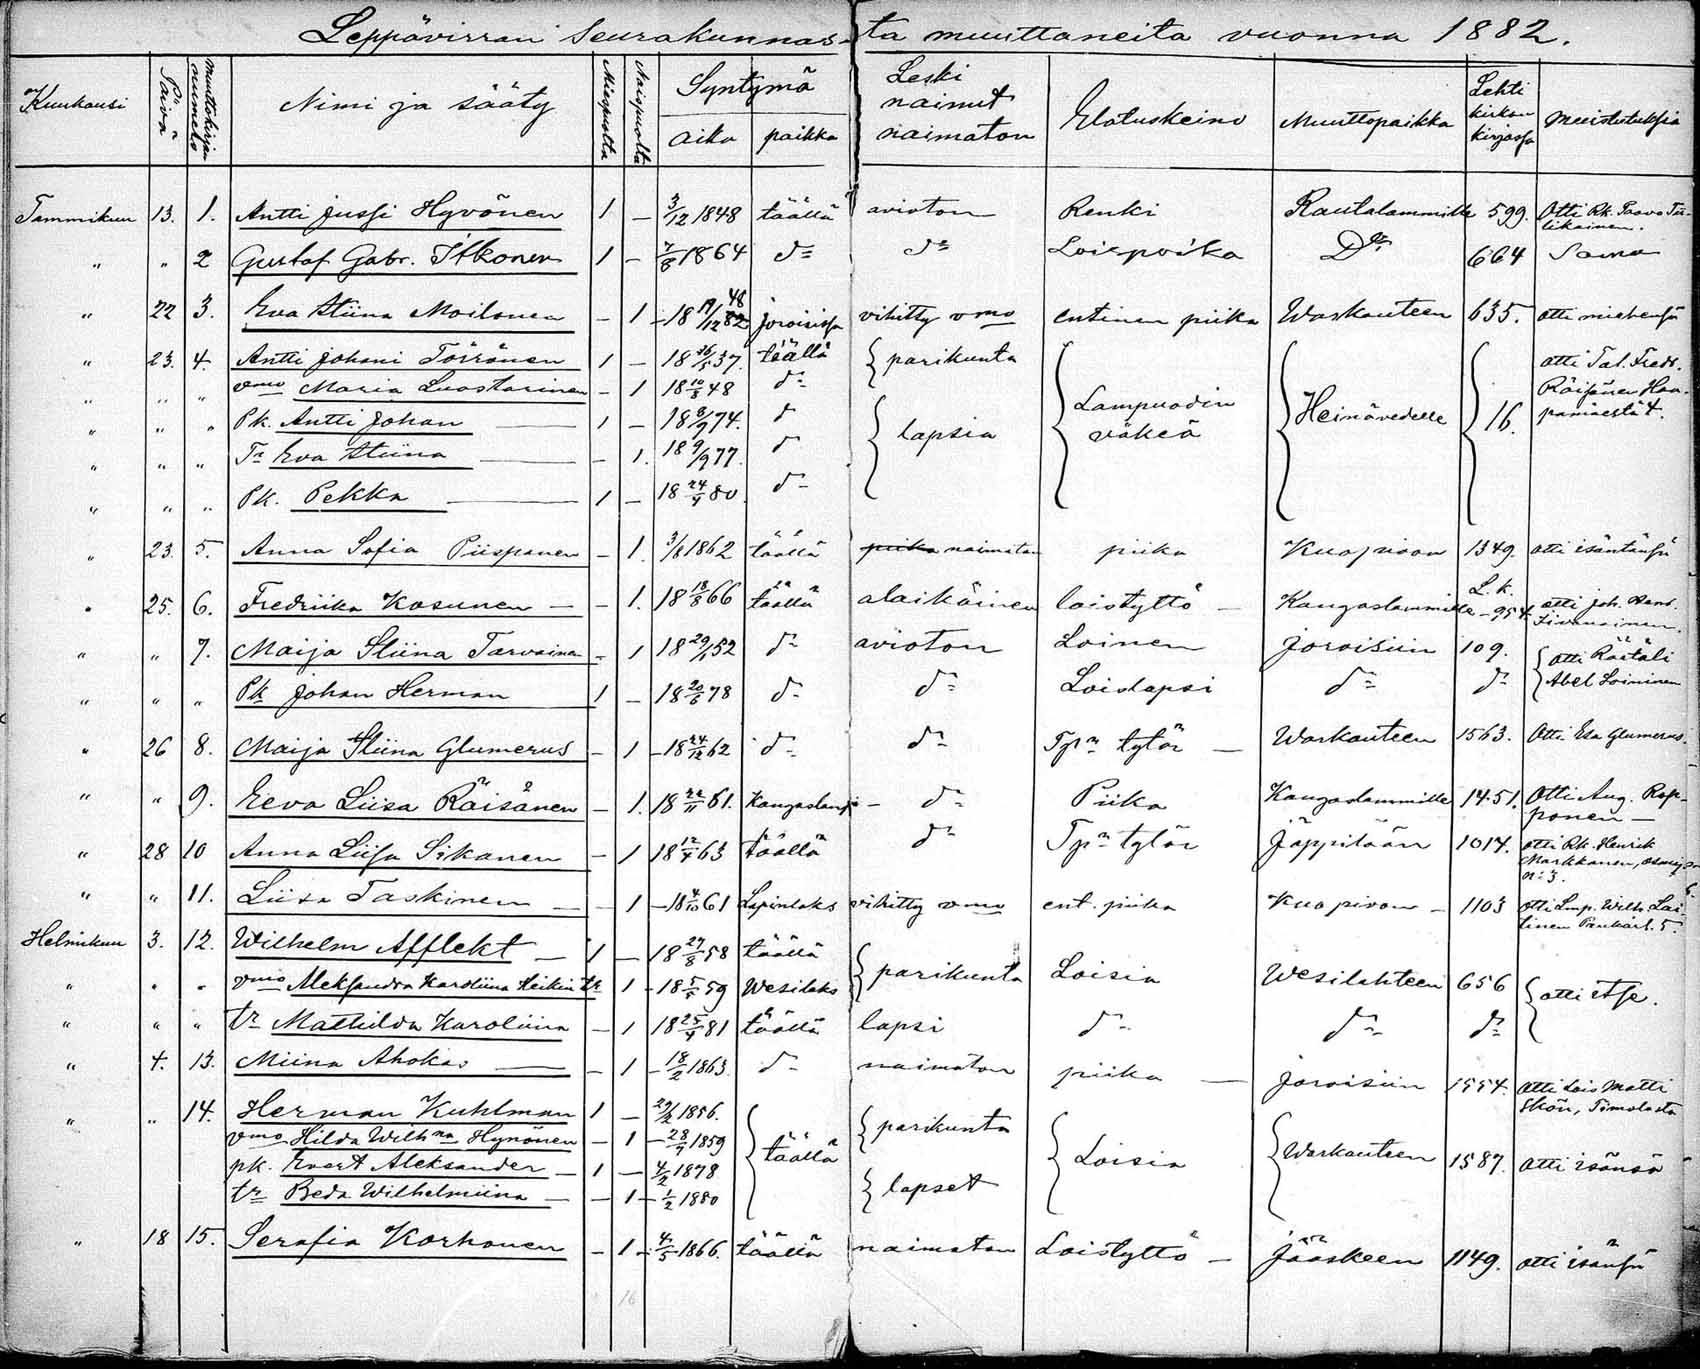 Leppävirran Seurakunnasta muuttaneita vuonna 1882.
Kuukausi Päivä muuttokirjan nummelo Nimi ja sääty Miespuolta Naispuolta Syntymä aika paikka Leski nainut naimaton Elatuskeino Muuttopaikka Lehti kirkon kirjassa Muistutuksia
Tammikuu 13. 1. Antti Jussi Hyvönen 1 - 3/12 1848 täällä avioton Renki Rautalammille 599. Otti Rk. Paavo
" " 2 Gustaf Gabr. Itkonen 1 - 7/8 1864 do do Loispoika Do 664 Sama
" 22 3. Eva Stiina Moilanen - 1 Joroisissa vihitty vmo entinen piika Warkauteen 635. otti miehensä
" 23. 4. Antti Johani Törrönen 1 - 18 26/5 37. täällä { parikunta { Lampuodin väkeä { Heinävedelle { 16. otti Tal. Fredr. Räisänen
" " " vmo Maria Luostarinen - 1 18 10/8 48 do
" " " Pk. Antti Johan 1 - 18 8/9 74. d { lapsia
" " " Tr Eva Stiina - 1. 18 9/9 77. d
" " " Pk. Pekka 1 - 18 24/4 80. do
" 23. 5. Anna Sofia Piispanen - 1. 3/8 1862 täällä piika naimaton piika Kuopioon 1349. otti isäntänsä
" 25. 6. Fredriika Kosunen - 1. 18 18/8 66 täällä alaikäinen loistyttö - Kangaslammille L.k. 954. otti Joh. Henr.
" " 7. Maija Stiina Tarvainen - 1 18 29/1 52 do avioton Loinen Joroisiin 109. { otti Räätäli
" " " Pk Johan Herman 1 - 18 20/6 78 do do Loislapsi do do Abel Loininen
" 26 8. Maija Stiina Glumerus - 1 - 18 24/12 62 do do Tpn tytär - Warkauteen 1563. Otti Esa Glumerus.
" " 9. Eeva Liisa Räisänen - 1. 18 22/11 61. Kangaslampi - do Piika Kangaslammille 1451. Otti Aug. Rop-
ponen -
" 28 10 Anna Liisa Sikanen - 1 18 12/4 63 täällä do Tpn tytär Jäppilään 1014. otti Rk. Henrik
Markkanen,
N:3.
" " 11. Liisa Taskinen - - 1 - 18 4/10 61 Lapinlaks vihitty vmo ent. piika Kuopioon - 1103 otti Lmp. Wilh. Lai-
tinen
Helmikuu 3. 12. Wilhelm Afflekt - 1 - 18 27/8 58 täällä { parikunta Loisia Wesilahteen 656 { otti itse.
" " " vmo Aleksandra Karoliina Heikin tr - 1 - 18 5/5 59 Wesilaks
" " " tr Mathilda Karoliina - 1 18 25/4 81 täällä lapsi do do do
" 4. 13. Miina Ahokas - 1 - 18/2 1863. do naimaton piika - Joroisiin 1554. Otti Lois Matti
Skön, Timolasta
" " 14. Herman Kuhlman 1 - 29/2 1856. { täällä { parikunta { Loisia { Warkauteen 1587. Otti isänsä
vmo Hilda Wilhna Hynönen - 1 - 28/7 1859
pk. Evert Aleksander - 1 - 4/2 1878 { lapset
tr Beda Wilhelmiina - - 1 - 1/2 1880
" 18 15. Serafia Korhonen - 1 - 4/5 1866. täällä naimaton Loistyttö - Jääskeen 1149. otti isänsä
16